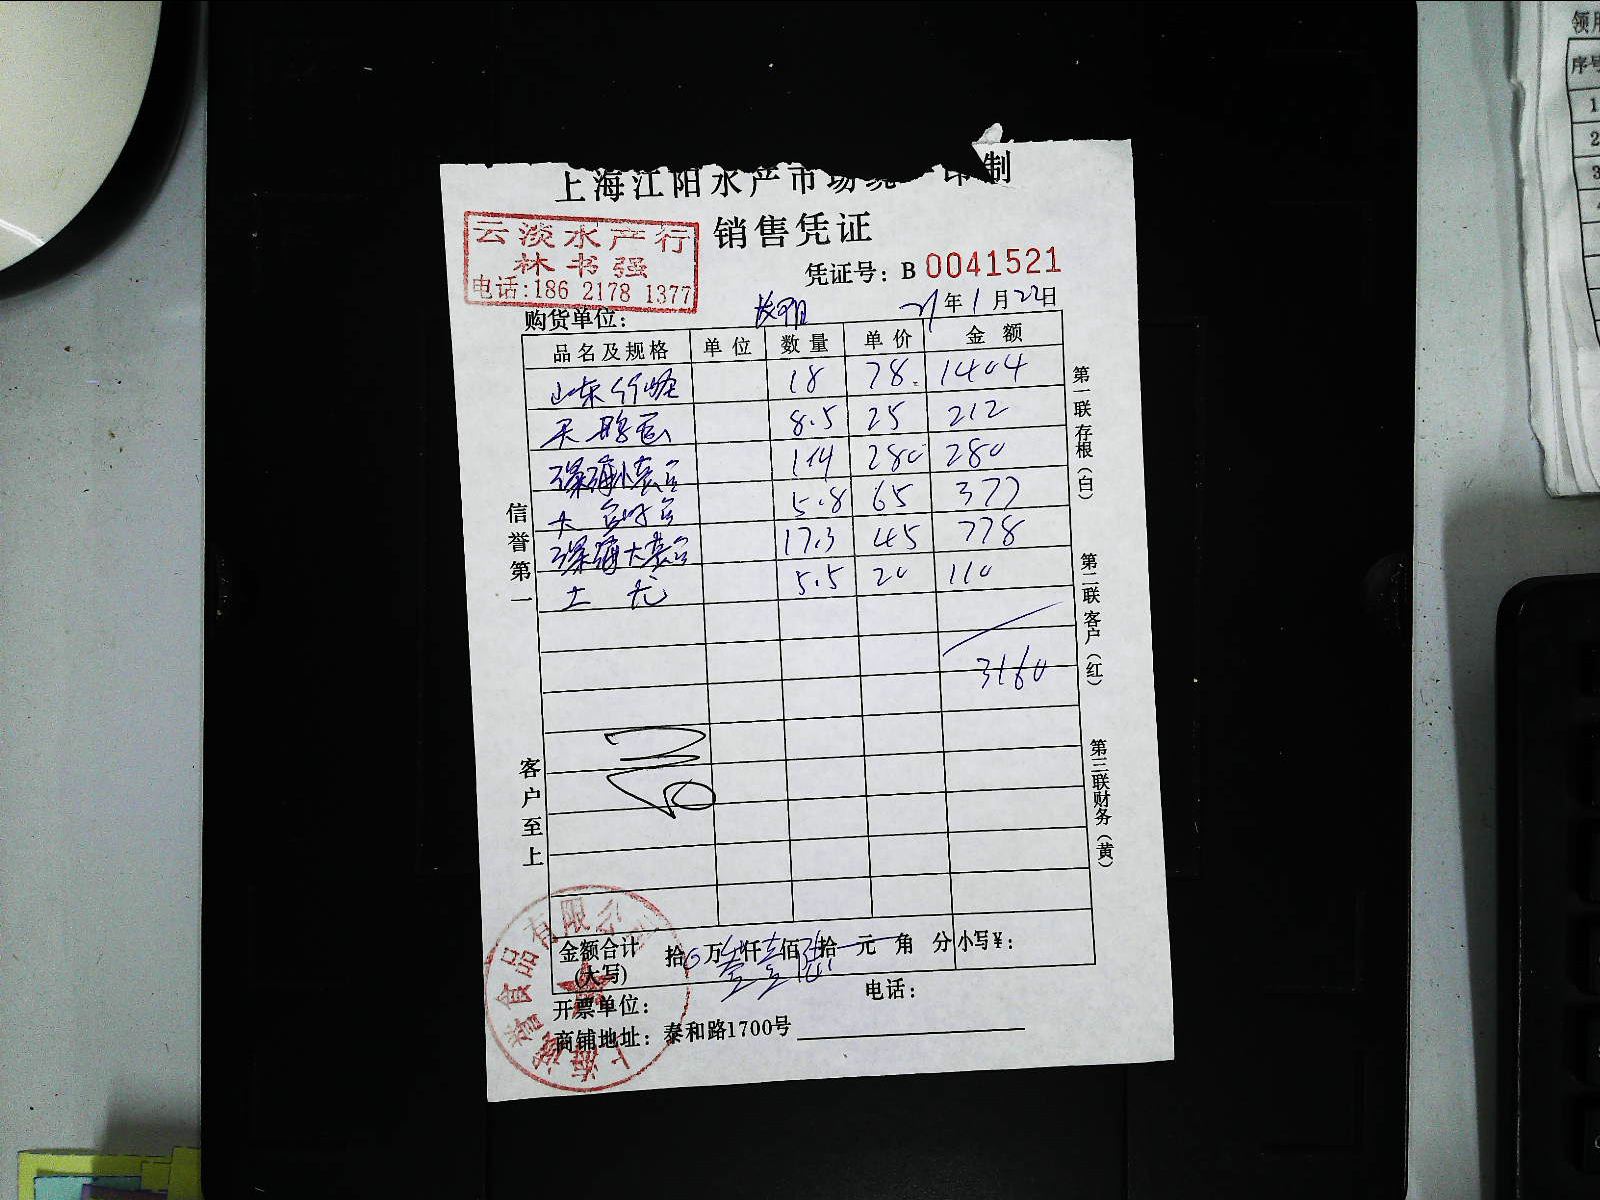 上海江阳水产市场统一印制
销售凭证
云淡水产行
林书强
电话:186 2178 1377
凭证号: B 0041521
购货单位:
21年1月22日
品名及规格 单位 数量 单价 金额
山东 18 78. 1404
8.5 25 212
深海小 114 280 280
大 5.8 65 377
深海大 17.3 45 778
土 5.5 20 110
3160
信誉第一
客户至上
第一联存根(白)
第二联客户(红)
第三联财务(黄)
金额合计(大写) 拾 万 仟 佰 拾 元 角 分 小写¥:
开票单位: 电话:
商铺地址: 泰和路1700号
食品有限公司
上海
领用
序号
1
2
3